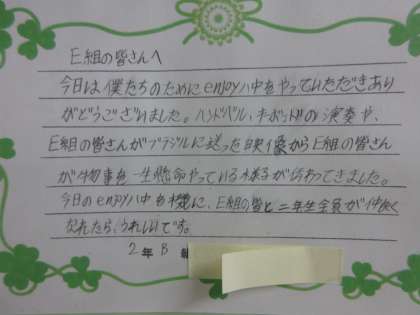 E組の皆さんへ
今日は僕たちのためにenjoyハ中をやっていただきあり
がとうございました。ハンドベル、キーボードの演奏や、
E組の皆さんがブラジルに送った映像からE組の皆さん
が物事を一生懸命やっている様子が伝わってきました。
今日のenjoyハ中を機に、E組の皆と二年生全員が仲良く
なれたら、うれしいです。
2年B組